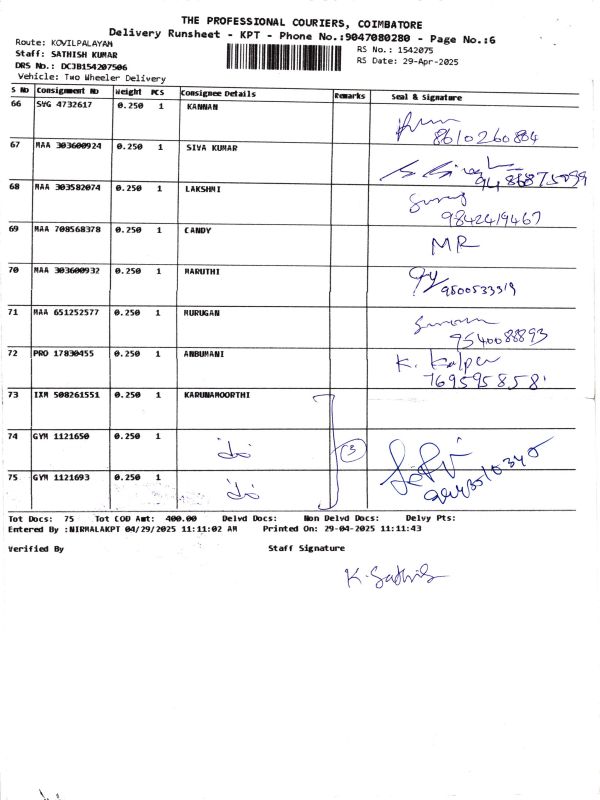 THE PROFESSIONAL COURIERS, COIMBATORE
Delivery Runsheet - KPT - Phone No.:9047080280 - Page No.:6
Route: KOVILPALAYAM
RS No.: 1542075
Staff: SATHISH KUMAR
RS Date: 29-Apr-2025
DRS No.: DCJB154207506
Vehicle: Two Wheeler Delivery
S No Consignment No Weight PCS Consignee Details Remarks Seal & Signature
66 SVG 4732617 0.250 1 KANNAN
8610260884
67 MAA 303600924 0.250 1 SIVA KUMAR
68 MAA 303582074 0.250 1 LAKSHMI
9842419467
69 MAA 708568378 0.250 1 CANDY MR
70 MAA 303600932 0.250 1 MARUTHI
9500533319
71 MAA 651252577 0.250 1 MURUGAN
9540088893
72 PRO 17830455 0.250 1 ANBUMANI K.
7695958581
73 IXM 508261551 0.250 1 KARUNAMOORTHI
74 GYM 1121650 0.250 1 3
75 GYM 1121693 0.250 1
Tot Docs: 75 Tot COD Amt: 400.00 Delvd Docs: Non Delvd Docs: Delvy Pts:
Entered By :NIRMALAKPT 04/29/2025 11:11:02 AM Printed On: 29-04-2025 11:11:43
Verified By Staff Signature
K. Sathis